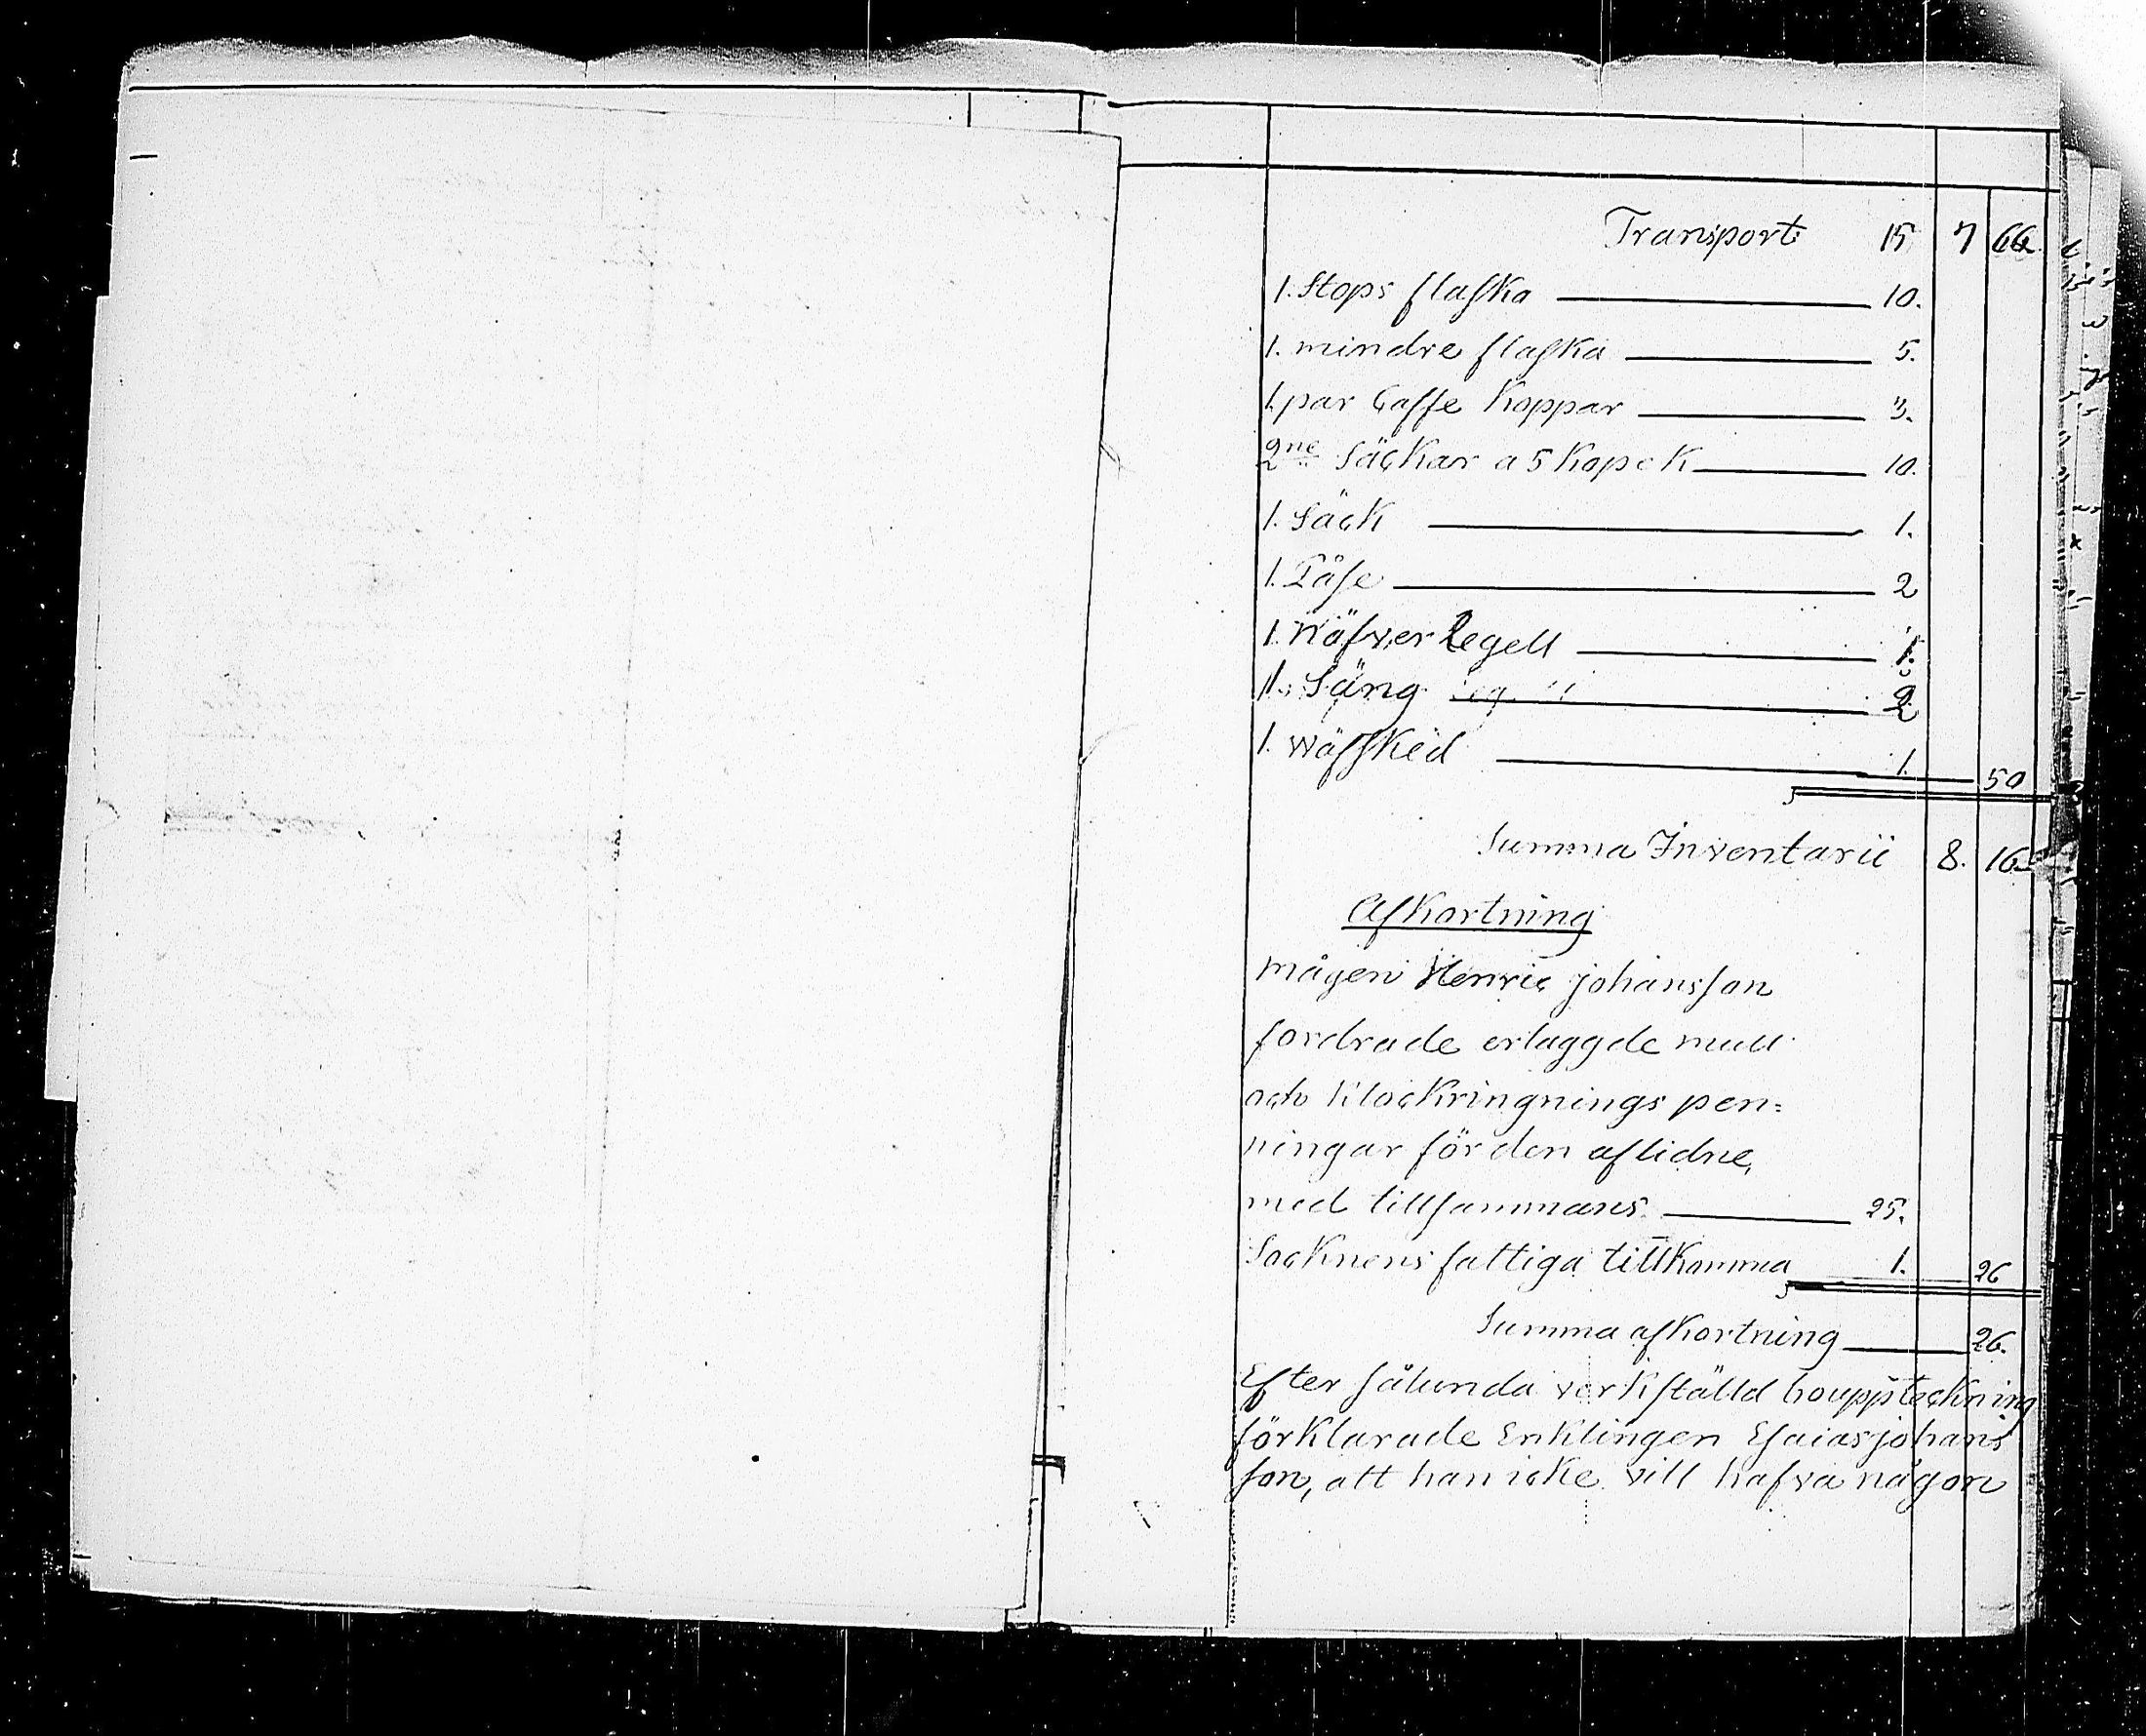 Transport 15 7 66.
1. Stops flaska 10.
1. mindre flaska 5.
1. par Caffe Koppar 3.
2ne Säckar a 5 Kopek 10.
1. Säck 1.
1. Påse 2
1. Näfver 1.
1. Säng 2
1. Wäfsked 1. 50
Summa Inventarii 8. 16
Afkortning
mågen Henric Johansson
fordrade erlaggde mull
och Klockringnings pen=
ningar för den aflidne,
med tillsammans 25.
Socknens fattiga tillkomma 1. 26
Summa afkortning 26.
Efter sålunda verkställd bouppteckning
förklarade Enklingen Esaias johans
son, att han icke vill hafva någon